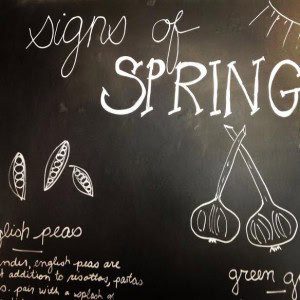 signs of
SPRING
glish peas
green g
nder, english peas are
t addition to risottos, pastas
s. pair with a splash of